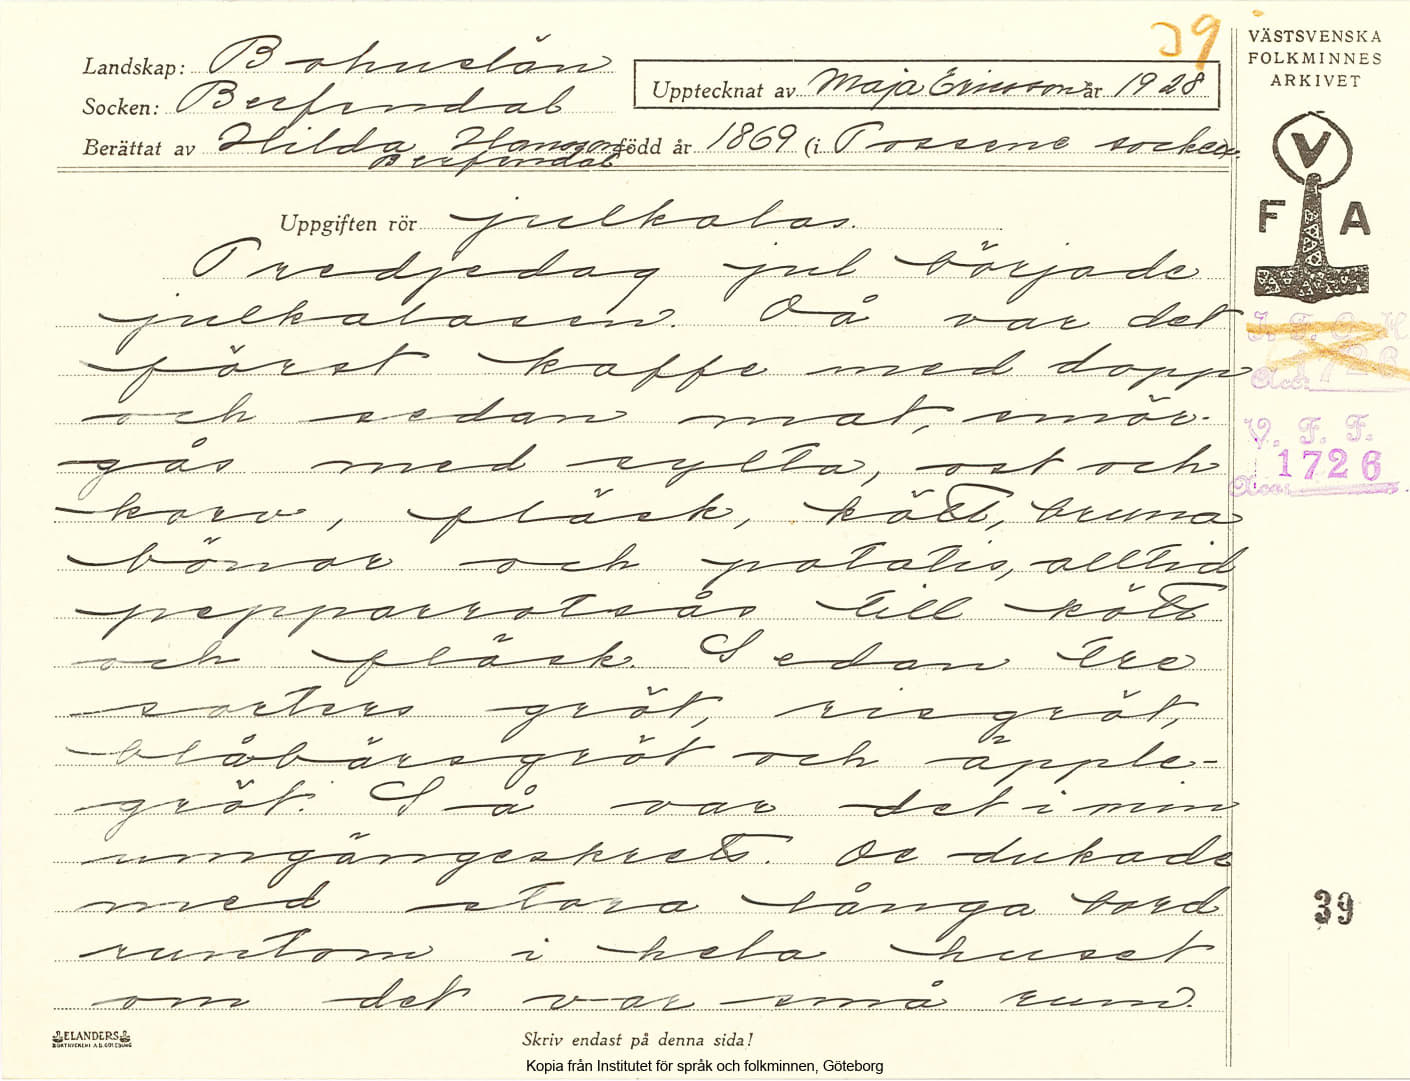 39
VÄSTSVENSKA
FOLKMINNES
ARKIVET
Landskap: Bohuslän
Upptecknat av Maja Ericsson år 1928
Socken: Berfendal
Berättat av Hilda Hansson född år 1869 (i Tossene socken.
Berfendal
V
F A
Uppgiften rör julkalas.
Tredjedag jul började
julkalasen. Då var det
först kaffe med dopp
och sedan mat, smör-
gås med sylta, ost och
korv, fläsk, kött, bruna
bönor och potatis, alltid
pepparrotsås till kött
och fläsk. Sedan tre
sorters gröt, risgröt,
blåbärsgröt och äpple-
gröt. Så var det i min
umgängeskrets. De dukade
med stora långa bord
runtom i hela huset
om det var små rum.
V. F. F.
1726
39
ELANDERS
BOKTRYCKERI A.B. GÖTEBORG
Skriv endast på denna sida!
Kopia från Institutet för språk och folkminnen, Göteborg